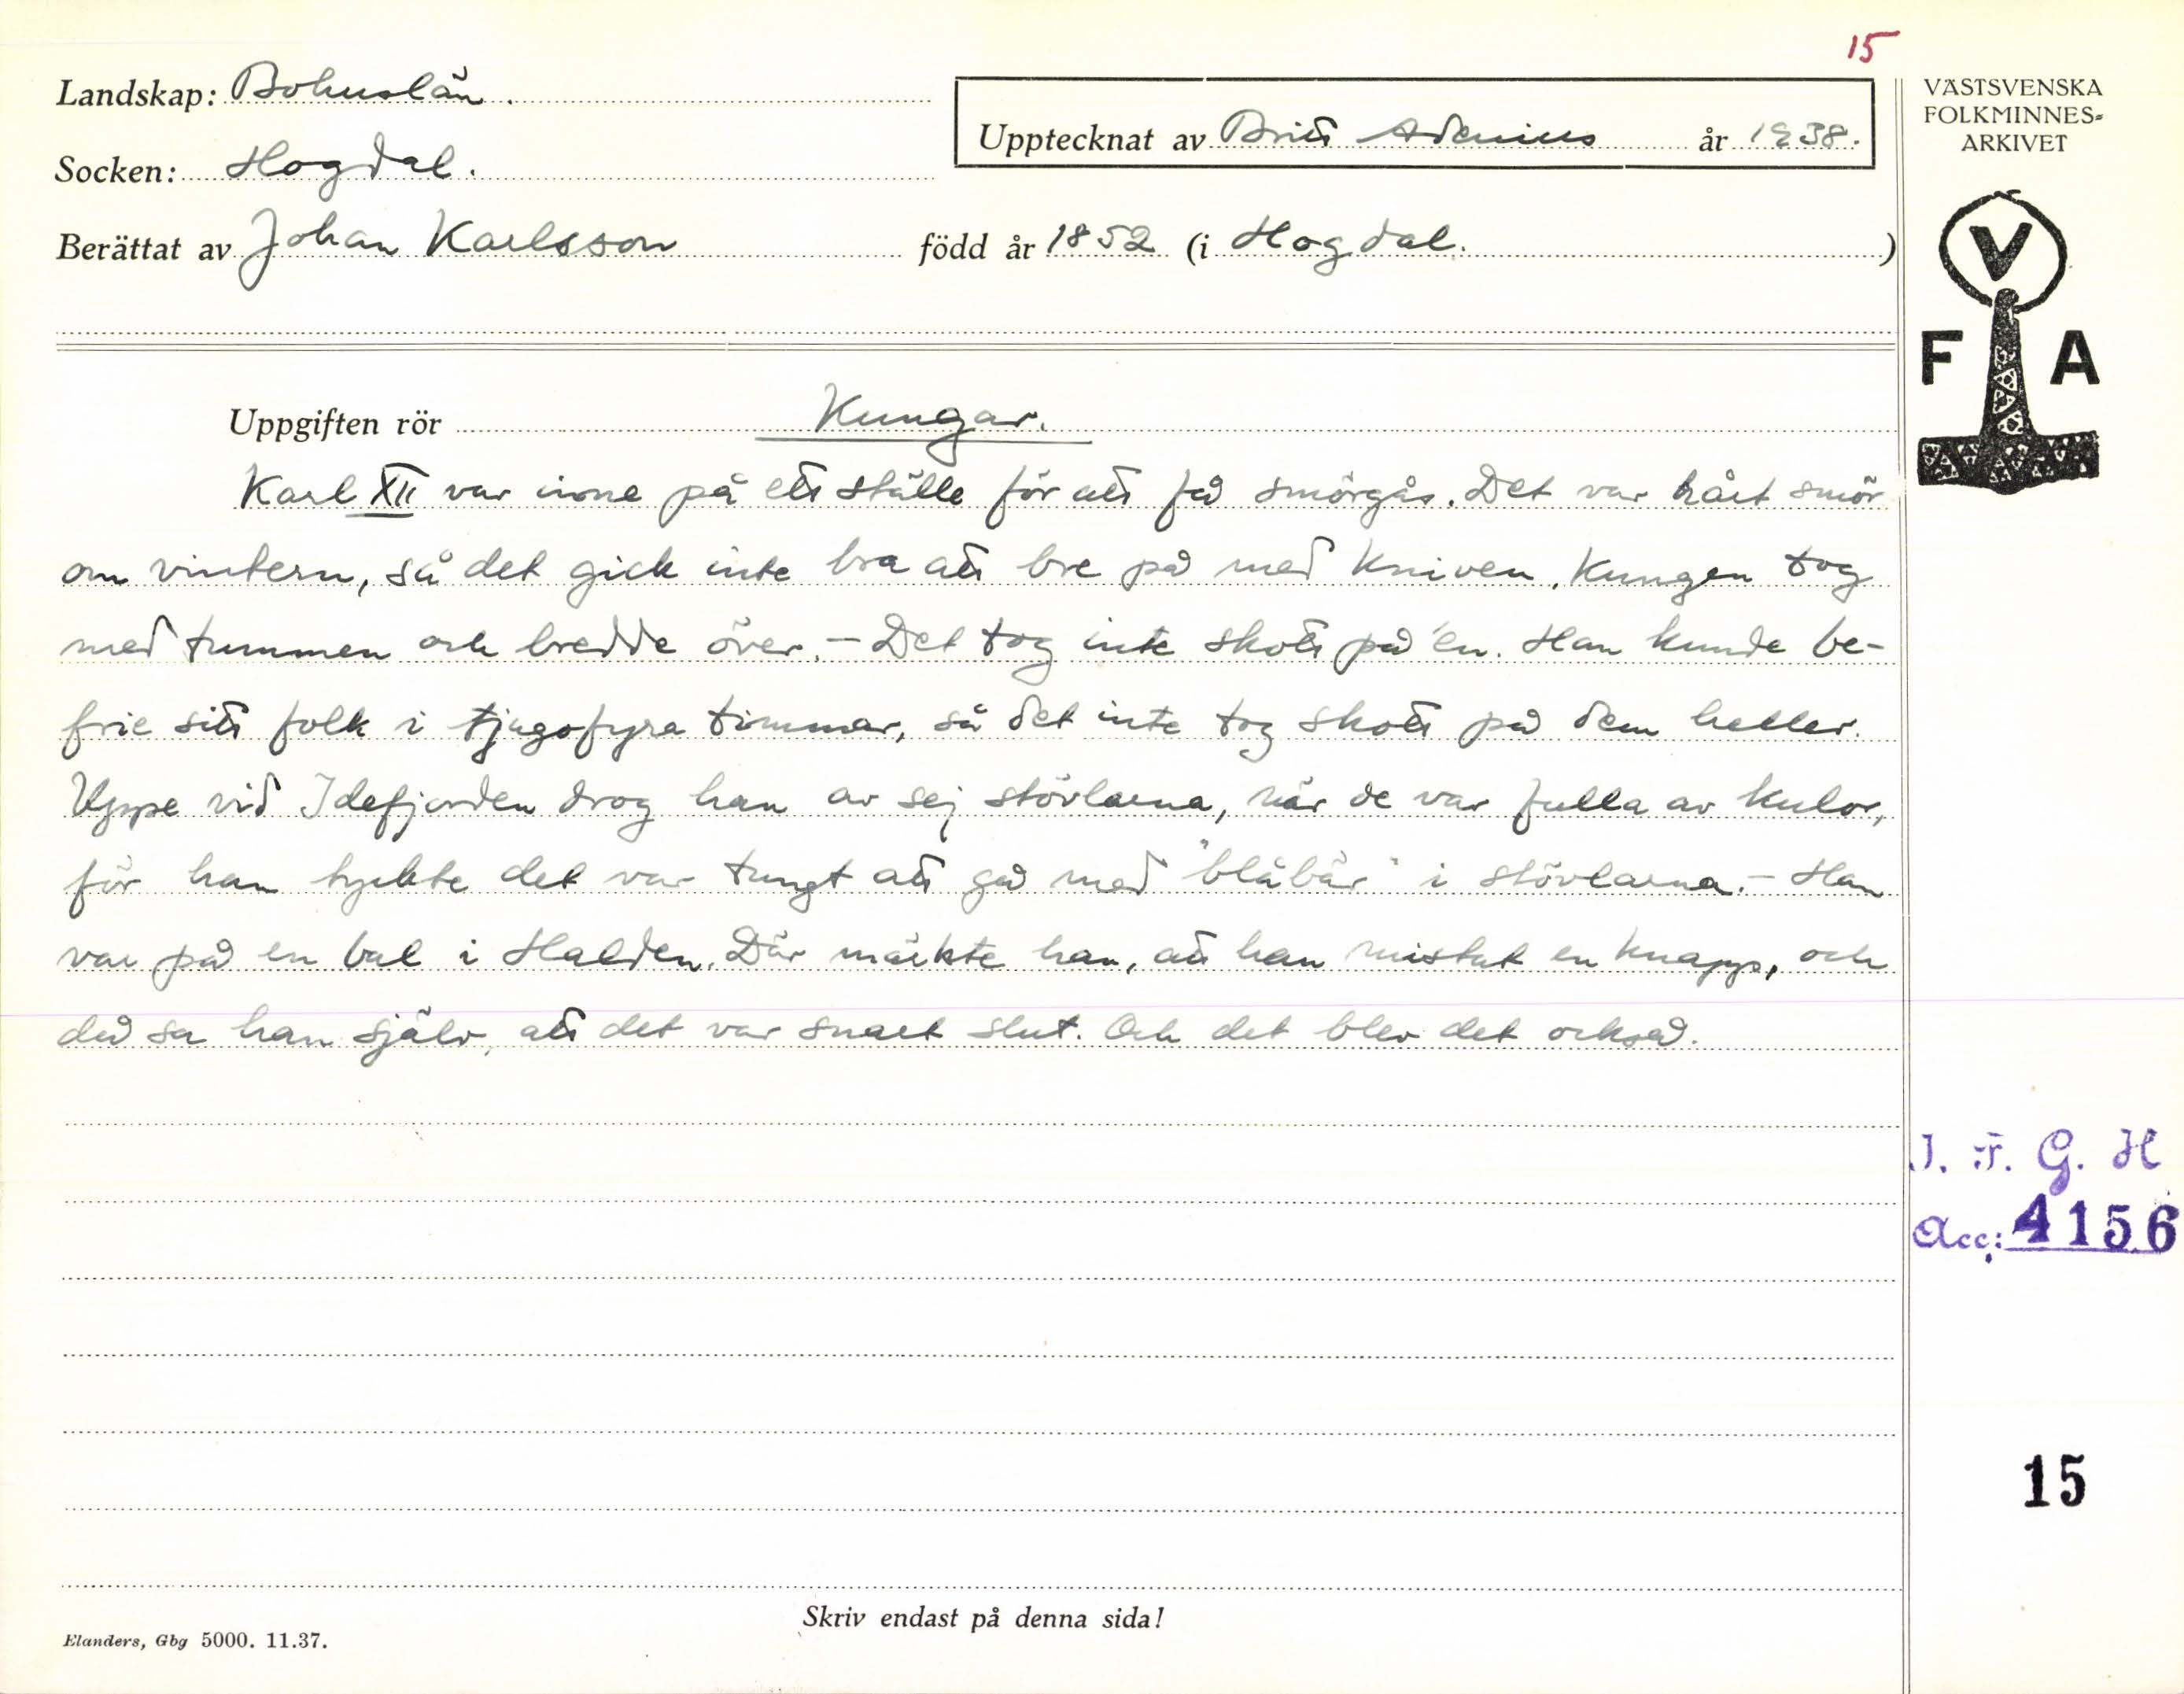 15
Landskap: Bohuslän.
Upptecknat av Britt Adenius år 1938.
Socken: Hogdal.
Berättat av Johan Karlsson född år 1852 (i Hogdal.)
VÄSTSVENSKA
FOLKMINNES-
ARKIVET
V
F A
Uppgiften rör Kungar.
Karl XII var inne på ett ställe för att få smörgås. Det var hårt smör
om vintern, så det gick inte bra att bre på med kniven. Kungen tog
med tummen och bredde över. - Det tog inte skott på'en. Han kunde be-
frie sitt folk i tjugofyra timmar, så det inte tog skott på dem heller.
Uppe vid Idefjorden drog han av sej stövlarna, när de var fulla av kulor,
för han tyckte det var tungt att gå med "blåbär" i stövlarna. - Han
var på en bal i Halden. Där märkte han, att han mistat en knapp, och
då sa han själv, att det var snart slut. Och det blev det också.
I. F. G. H
Acc: 4156
15
Skriv endast på denna sida!
Elanders, Gbg 5000. 11.37.